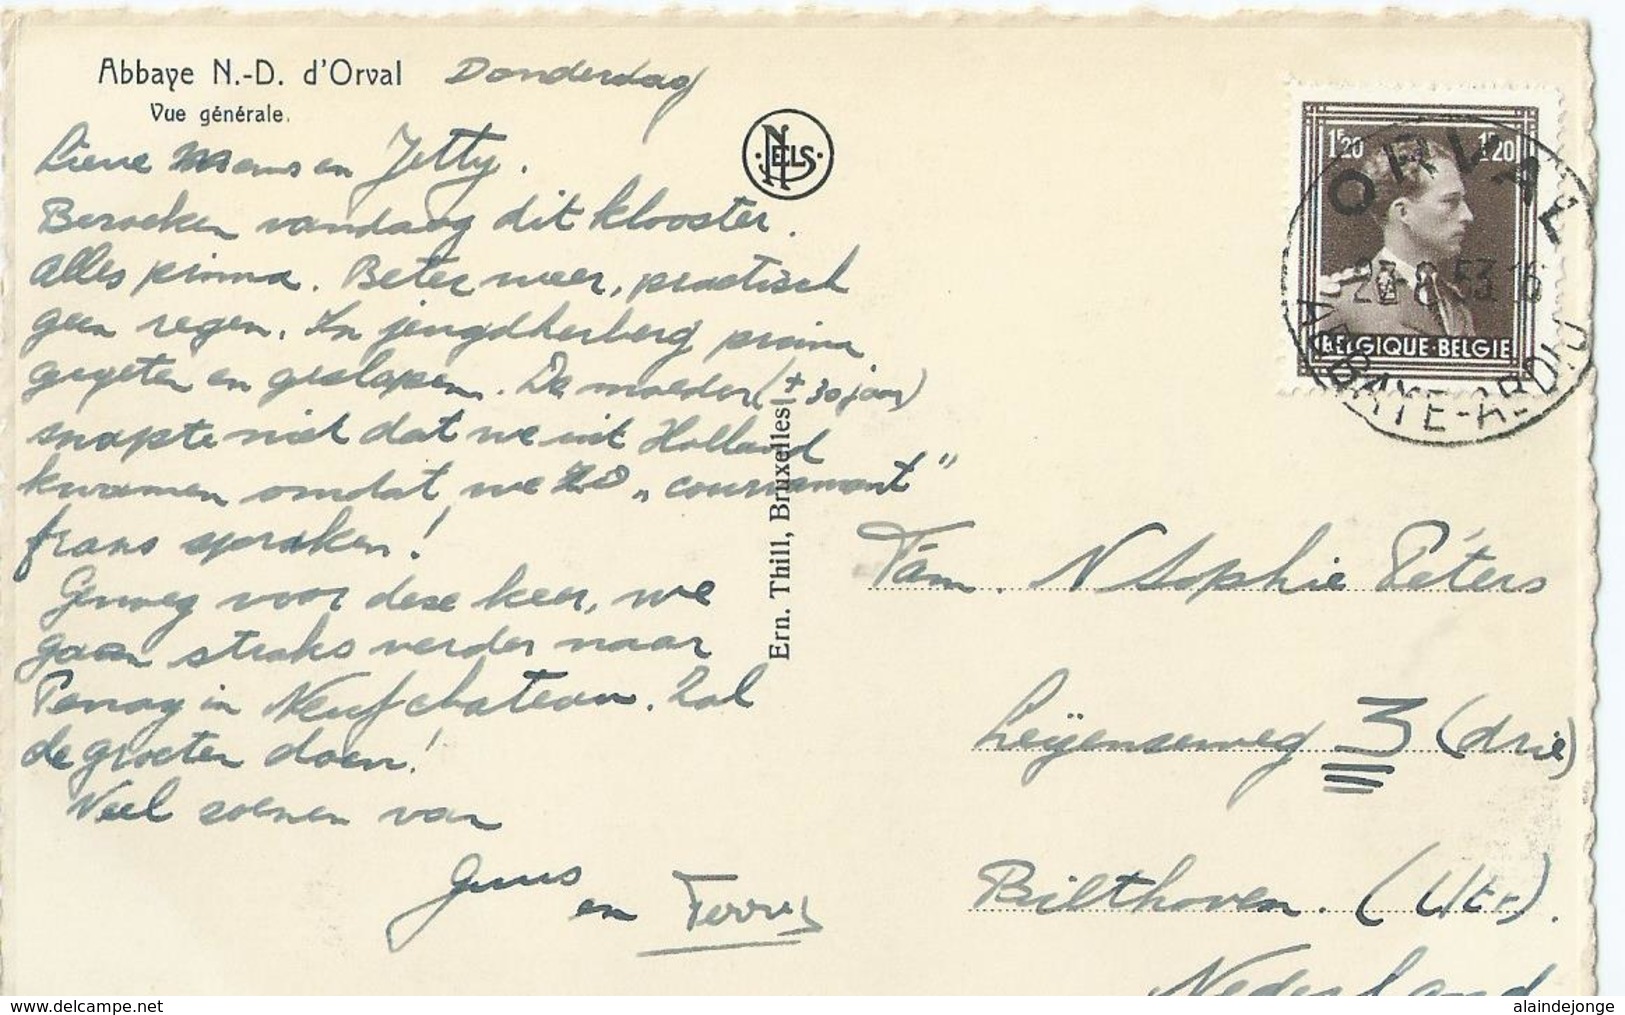 Abbaye N.-D. d'Orval Donderdag
Vue générale.
Lieve Mams en Jetty.
Bezoeken vandaag dit klooster.
Alles prima. Beter weer, practisch
geen regen. In jeugdherberg prima
gegeten en geslapen. De moeder (± 30 jaar)
snapte niet dat we uit Holland
kwamen omdat we zo „courramont"
frans spraken!
Genoeg voor deze keer, we
gaan straks verder naar
in Neufchateau. Zal
de groeten doen!
Veel zoenen van
Guus
en Ferry
NELS
Ern. Thill, Bruxelles
1F20 1F20
BELGIQUE·BELGIE
ORVAL
8-53 16
Fam. N Sophie Péters
Leyenseweg 3 (drie)
Bilthoven. (Utr).
Nederland
www.delcampe.net
alaindejonge